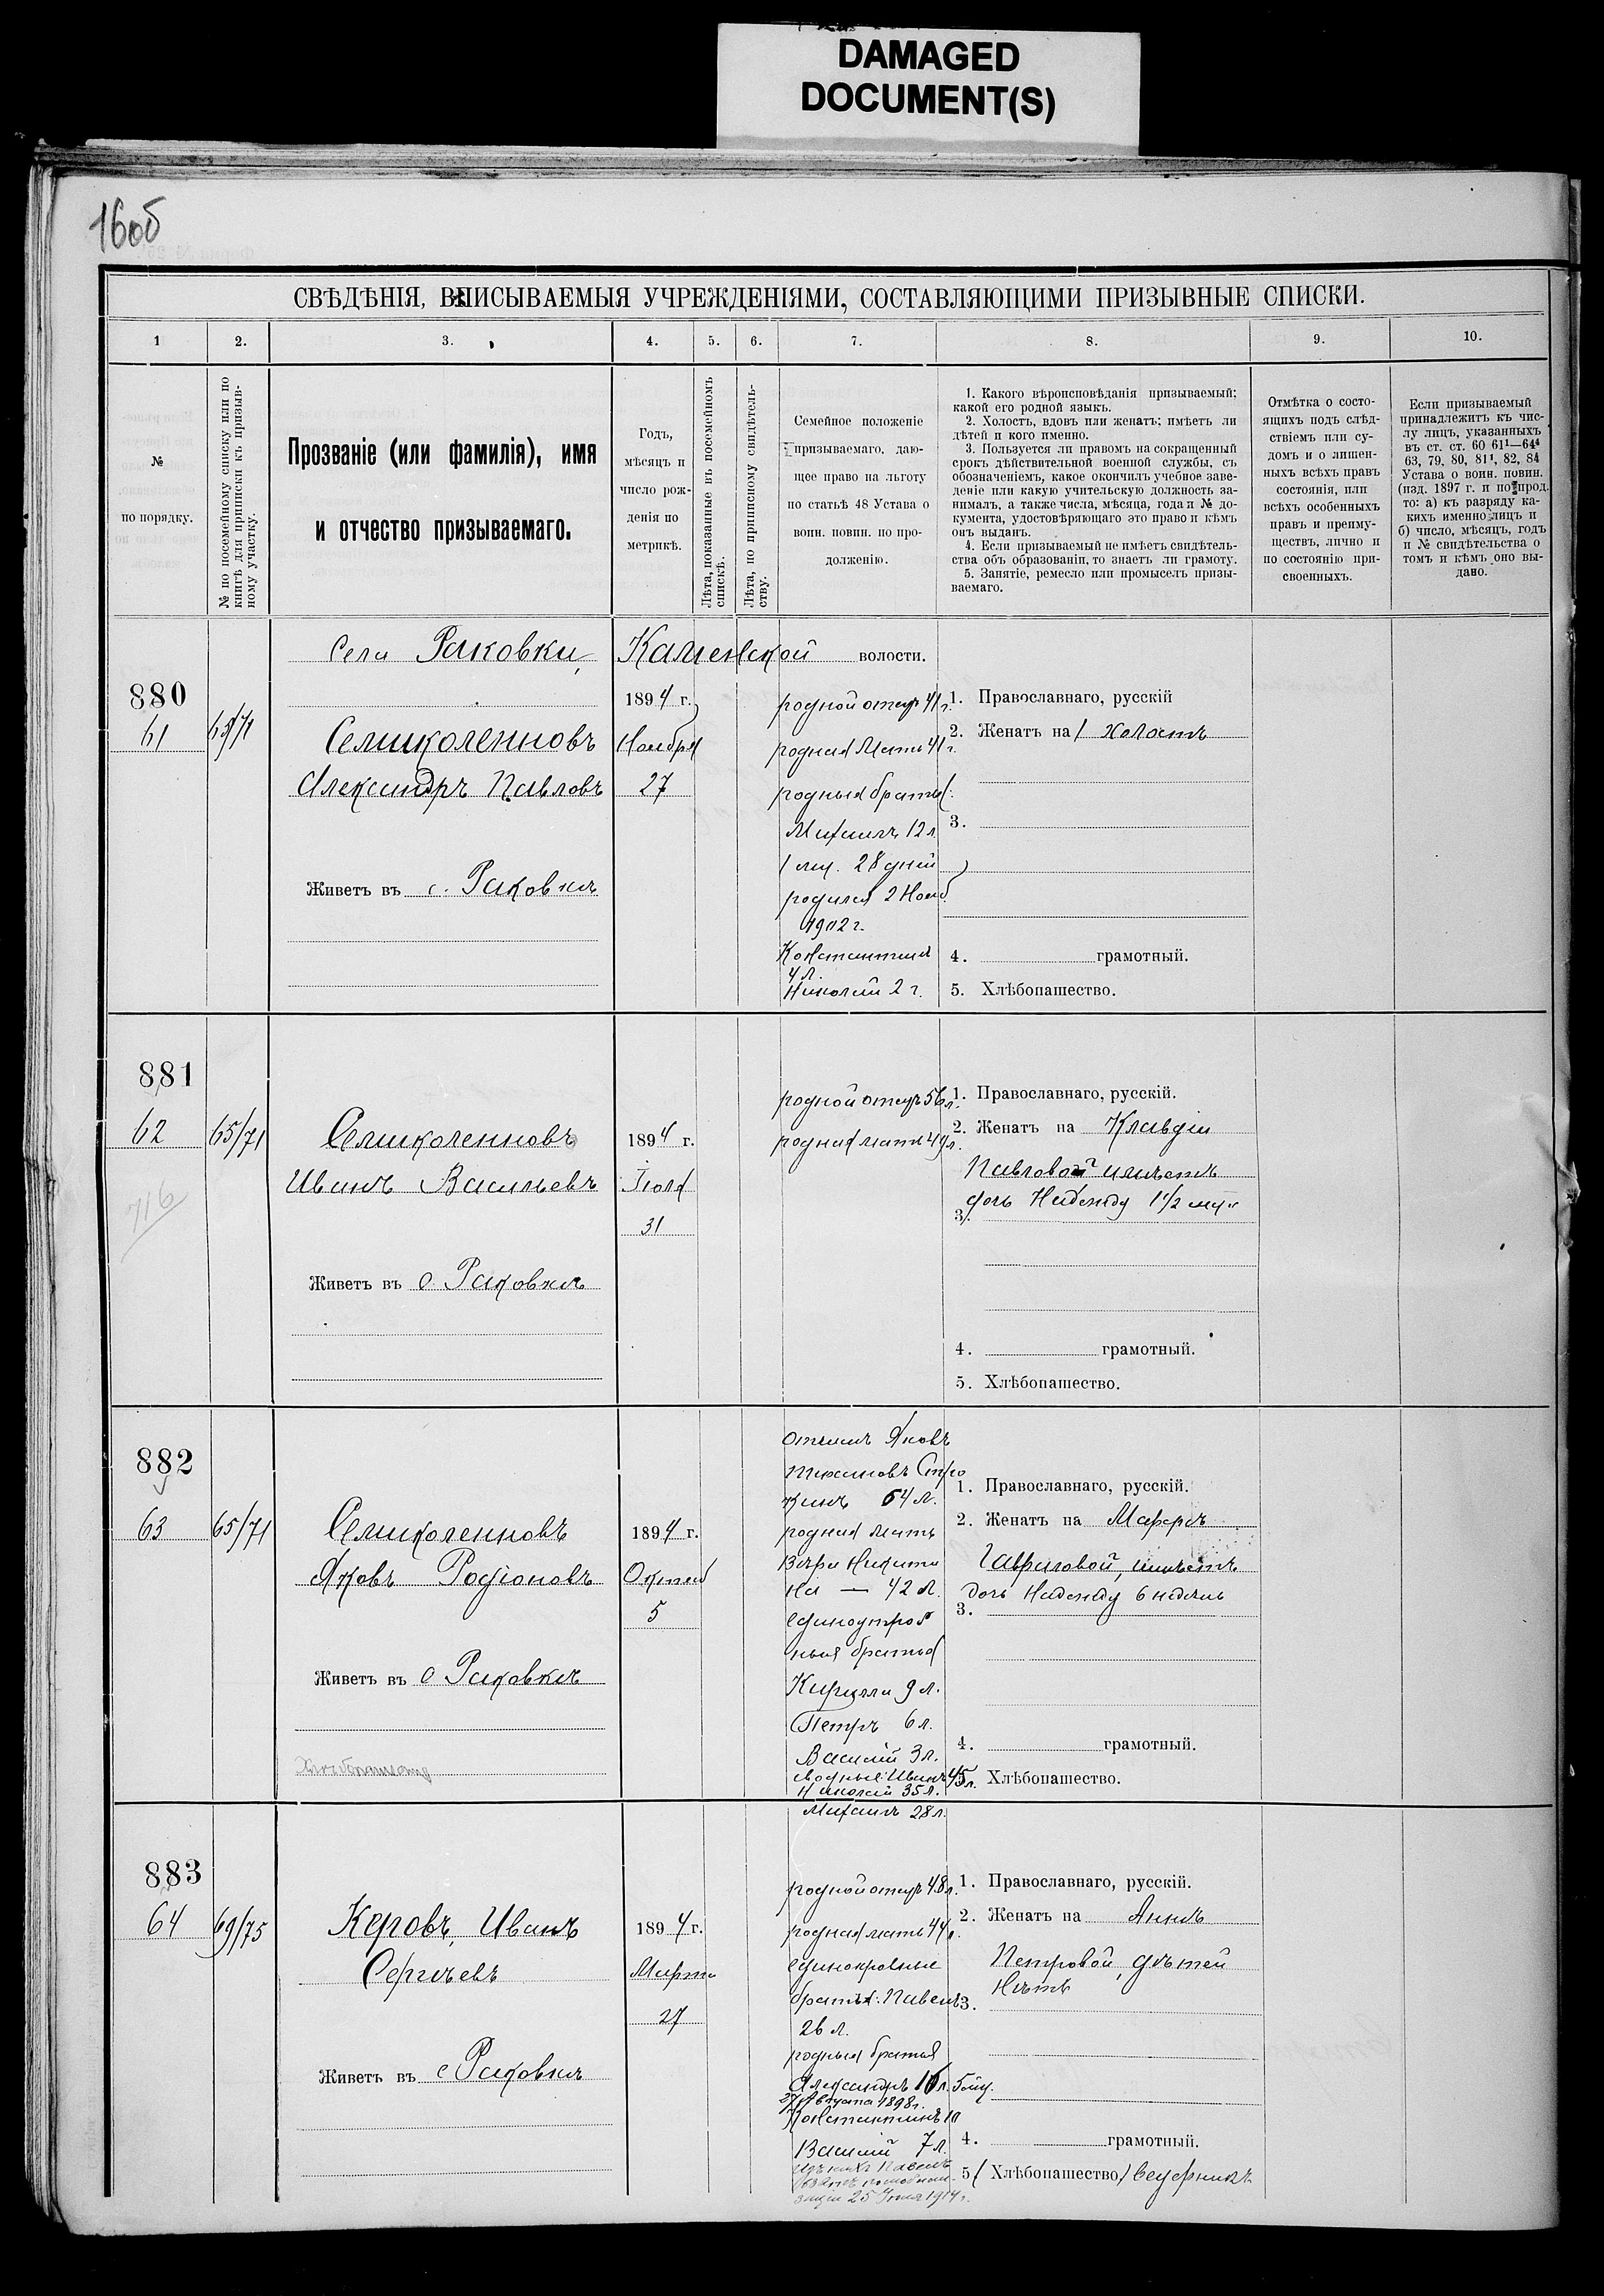 DAMAGED
DOCUMENT(S)
160б
СВѢДѢНІЯ, ВПИСЫВАЕМЫЯ УЧРЕЖДЕНІЯМИ, СОСТАВЛЯЮЩИМИ ПРИЗЫВНЫЕ СПИСКИ.
1 2. 3. 4. 5. 6. 7. 8. 9. 10.
№
по порядку.
№ по посемейному списку или по
книгѣ для приписки къ призыв-
ному участку.
Прозваніе (или фамилія), имя
и отчество призываемаго.
Годъ,
мѣсяцъ и
число рож-
денія по
метрикѣ.
Лѣта, показанные въ посемейномъ
спискѣ.
Лѣта, по приписному свидѣтель-
ству.
Семейное положеніе
призываемаго, даю-
щее право на льготу
по статьѣ 48 Устава о
воин. повин. по про-
долженію.
1. Какого вѣроисповѣданія призываемый;
какой его родной языкъ.
2. Холостъ, вдовъ или женатъ; имѣетъ ли
дѣтей и кого именно.
3. Пользуется ли правомъ на сокращенный
срокъ дѣйствительной военной службы, съ
обозначеніемъ, какое окончилъ учебное заве-
деніе или какую учительскую должность за-
нималъ, а также числа, мѣсяца, года и № до-
кумента, удостовѣряющаго это право и кѣмъ
онъ выданъ.
4. Если призываемый не имѣетъ свидѣтель-
ства объ образованіи, то знаетъ ли грамоту.
5. Занятіе, ремесло или промыселъ призы-
ваемаго.
Отмѣтка о состо-
ящихъ подъ слѣд-
ствіемъ или су-
домъ и о лишен-
ныхъ всѣхъ правъ
состоянія, или
всѣхъ особенныхъ
правъ и преиму-
ществъ, лично и
по состоянію при-
своенныхъ.
Если призываемый
принадлежитъ къ чис-
лу лицъ, указанныхъ
въ ст. ст. 60 61¹—64⁴
63, 79, 80, 81¹, 82, 84
Устава о воин. повин.
(изд. 1897 г. и по прод.
то: а) къ разряду ка-
кихъ именно лицъ и
б) число, мѣсяцъ, годъ
и № свидѣтельства о
томъ и кѣмъ оно вы-
дано.
Села Раковки, Каменской волости.
880
61
65/71
Семиколенновъ
Александръ Павловъ
Живетъ въ с. Раковкѣ
1894 г.
Ноября
27
родной отецъ 41 г.
родная мать 41 г.
родные братья:
Михаилъ 12 л.
1 мц. 28 дней
родился 2 Нояб.
1902 г.
Константинъ
4 л.
Николай 2 г.
1. Православнаго, русскій
2. Женатъ на / холостъ
3.
4. грамотный.
5. Хлѣбопашество.
881
62
716
65/71
Семиколенновъ
Иванъ Васильевъ
Живетъ въ с. Раковкѣ
1894 г.
Іюля
31
родной отецъ 56 л.
родная мать 49 л.
1. Православнаго, русскій.
2. Женатъ на Клавдіи
Павловой имѣетъ
дочь Надежду 1 1/2 мц.
3.
4. грамотный.
5. Хлѣбопашество.
882
63
65/71
Семиколенновъ
Яковъ Родіоновъ
Живетъ въ с Раковкѣ
1894 г.
Октяб
5
отчимъ Яковъ
64 л.
родная мать
Вѣра Никити
на — 42 л.
единоутроб
ные братья
Кирилла 9 л.
Петръ 6 л.
Василій 3 л.
сводные: Иванъ 45 л.
Николай 35 л.
Михаилъ 28 л.
1. Православнаго, русскій.
2. Женатъ на Марѳѣ
Гавриловой, имѣетъ
дочь Надежду 6 недѣль
3.
4. грамотный.
5. Хлѣбопашество.
883
64
69/75
Керовъ, Иванъ
Сергѣевъ
Живетъ въ с Раковкѣ
1894 г.
Марта
27
родной отецъ 48 л.
родная мать 44 л.
единокровные
братья: Павелъ
26 л.
родные братья
Александръ 16 л. 5 мц.
27 Августа 1898 г.
Константинъ 10
Василій 7 л.
Павелъ
25 Іюля 1914 г.
1. Православнаго, русскій.
2. Женатъ на Аннѣ
Петровой, дѣтей
нѣтъ
3.
4. грамотный.
5 ( Хлѣбопашество)